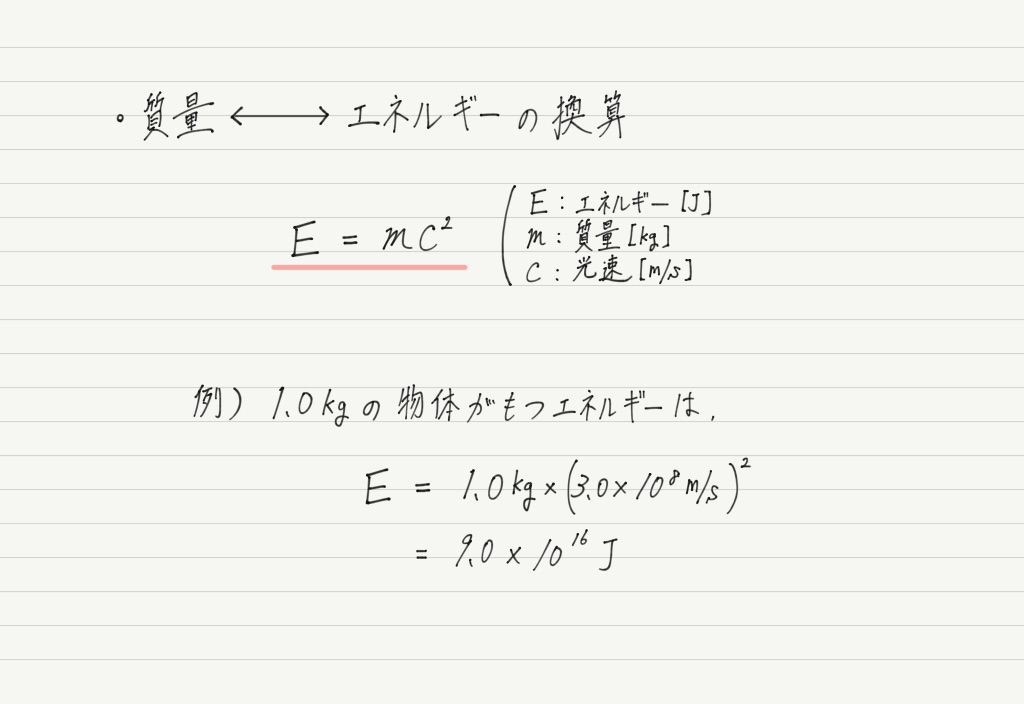 ・質量 ⟷ エネルギーの換算
E = mc²
E : エネルギー [J]
m : 質量 [kg]
c : 光速 [m/s]
例) 1.0kgの物体がもつエネルギーは,
E = 1.0kg × (3.0 × 10⁸ m/s)²
= 9.0 × 10¹⁶ J